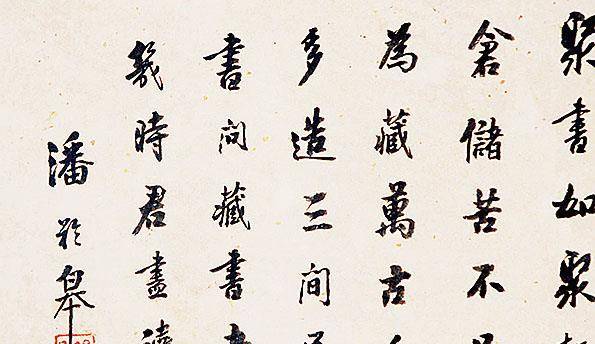 聚書如聚
倉儲苦不
為藏萬古
多造三間
書問藏書
幾時君盡讀
潘於皋